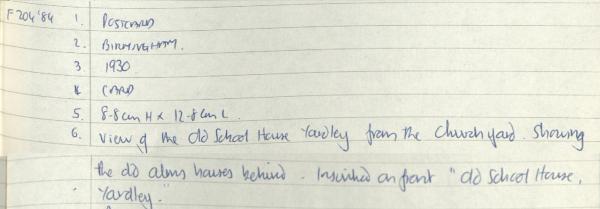 F204'84 1. POSTCARD
2. BIRMINGHAM.
3. 1930
4. CARD
5. 8.8cm H x 12.8cm L.
6. View of the Old School House Yardley from the Church yard. Showing
the old alms houses behind. Inscribed on front "Old School House,
Yardley."